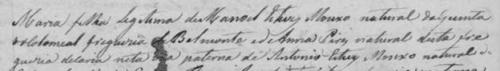 Maria filha legitima de Manoel Esteves Mouxo natural da Quinta
do Colmeal freguezia de Belmonte e de Anna Pires natural desta fre
guezia declaro neta paterna de Antonio Esteves Mouxo natural